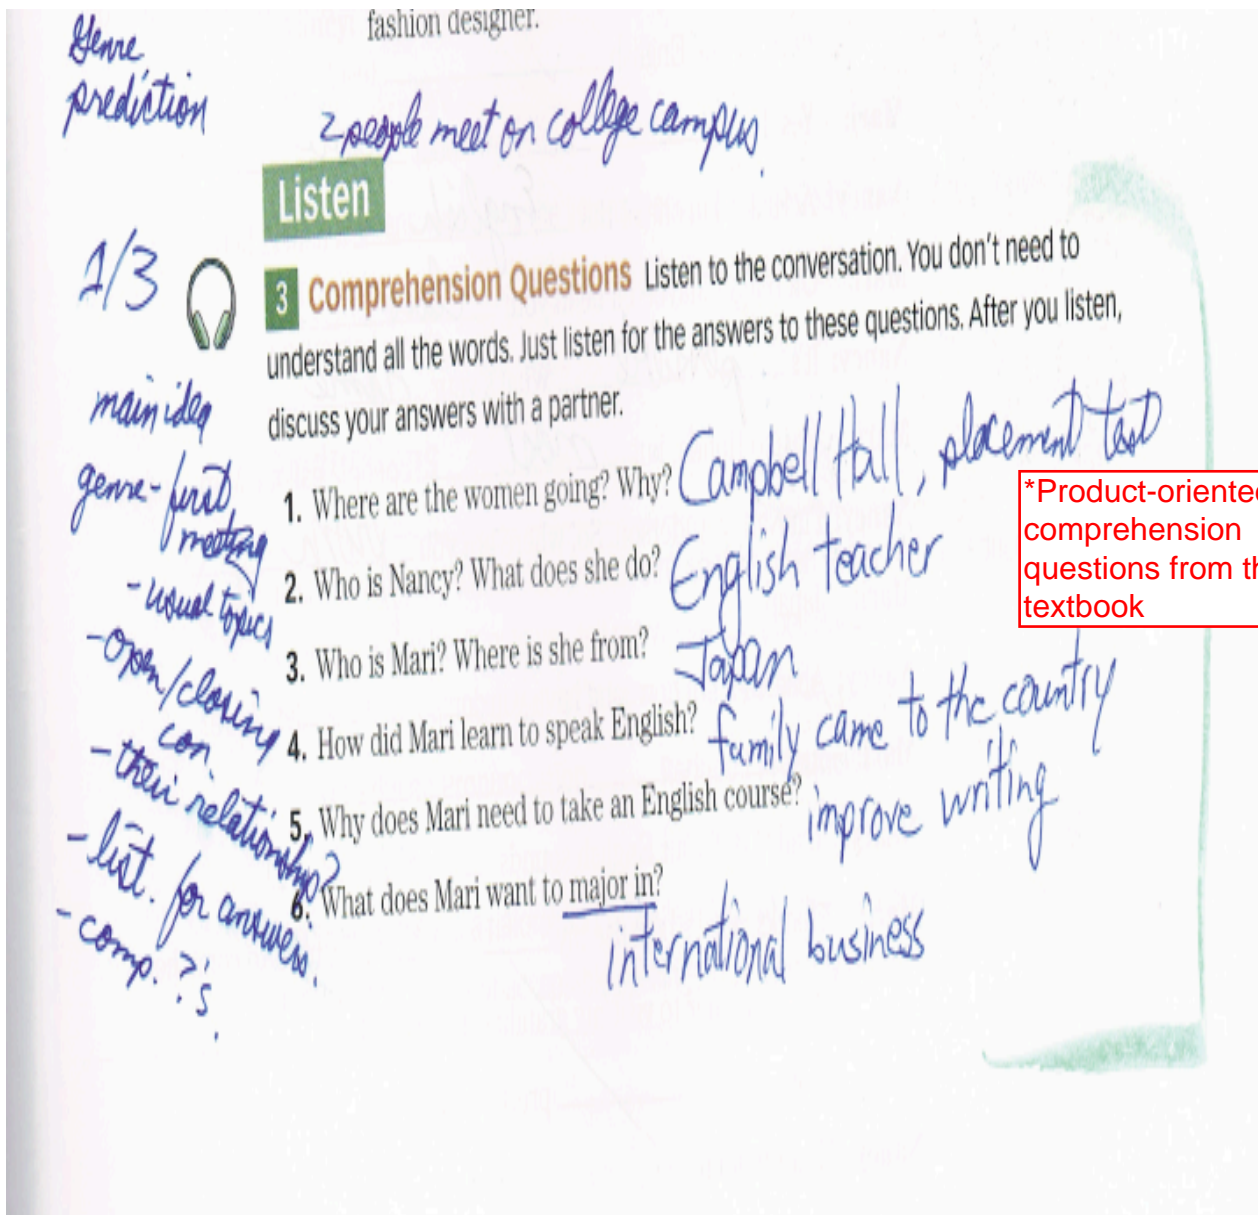 fashion designer.
Genre
prediction
2 people meet on college campus.
Listen
1/3
3 Comprehension Questions Listen to the conversation. You don't need to
understand all the words. Just listen for the answers to these questions. After you listen,
discuss your answers with a partner.
main idea
genre - first
meeting
- usual topics
- open/closing
con.
- their relationship?
- list. for answers.
- comp. ?'s.
1. Where are the women going? Why? Campbell Hall, placement test
2. Who is Nancy? What does she do? English teacher
3. Who is Mari? Where is she from? Japan
4. How did Mari learn to speak English? family came to the country
5. Why does Mari need to take an English course? improve writing
6. What does Mari want to major in?
international business
*Product-oriented
comprehension
questions from th
textbook